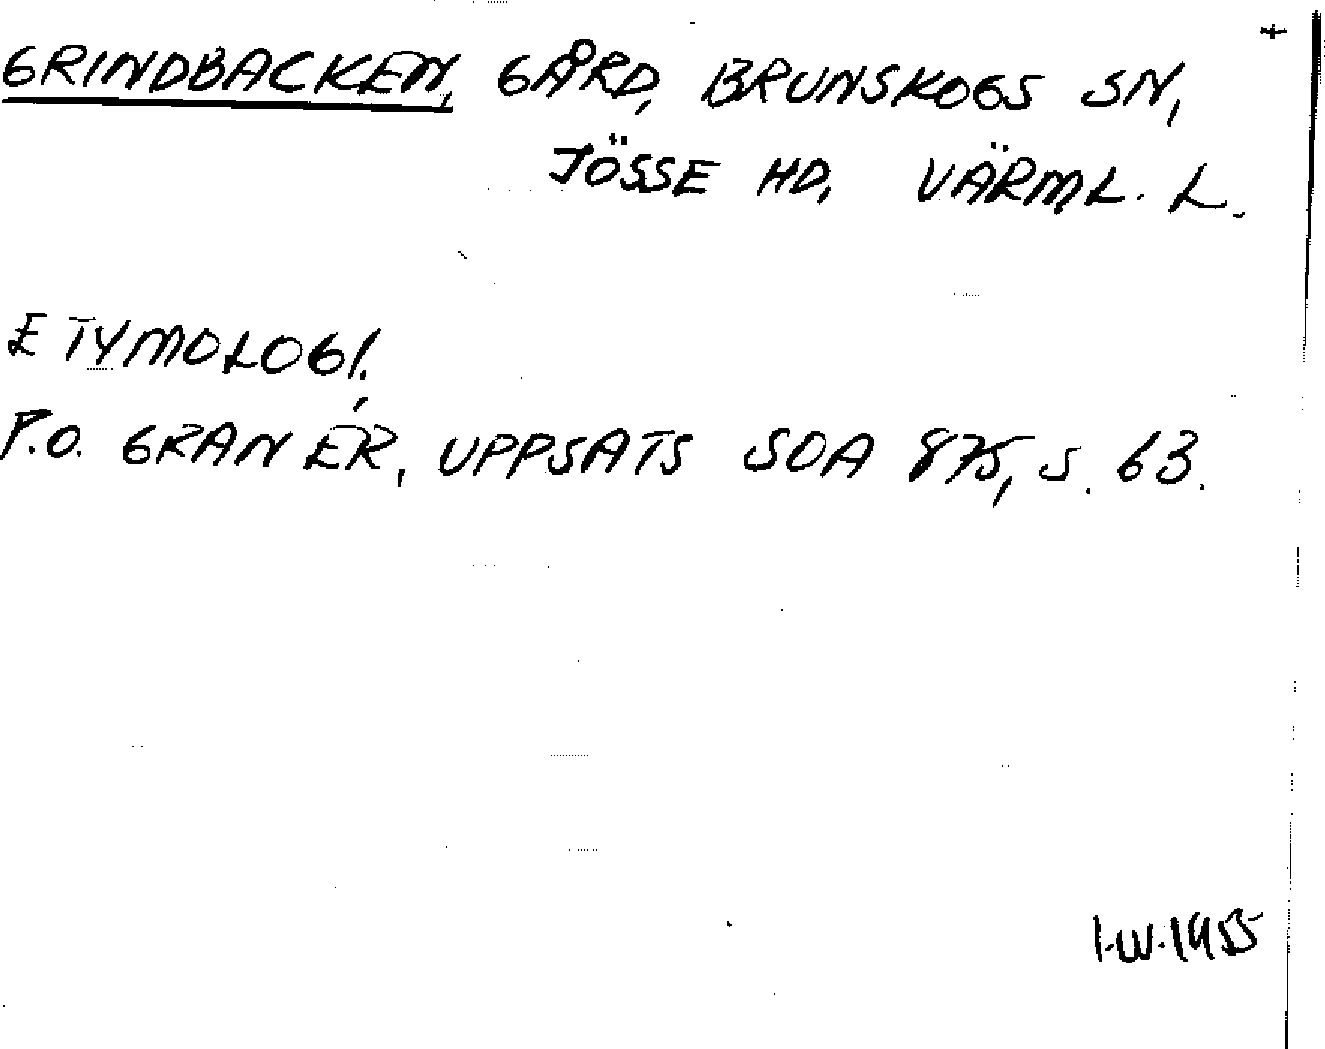 +
GRINDBACKEN, GÅRD, BRUNSKOGS SN,
JÖSSE HD, VÄRML. L.
ETYMOLOGI.
P.O. GRANÉR, UPPSATS SOA 875, S. 63.
I.W. 1955